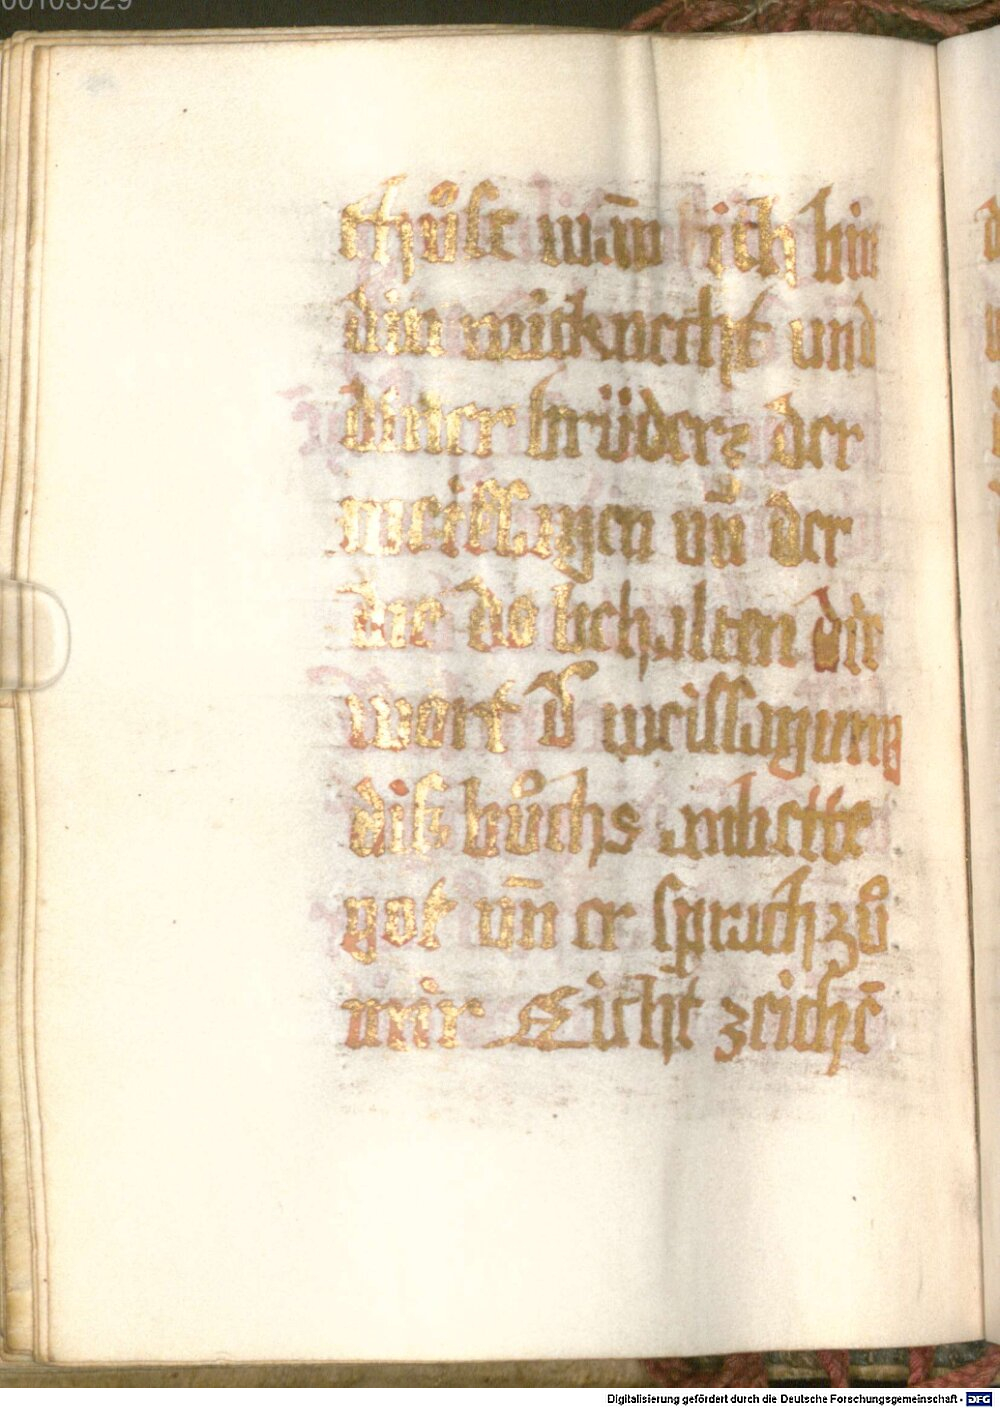 00103529
thůst wān ich bin
din mitknecht und
diner brüder der
weissagen uñ der
die do behalten die
wort d᷑ weissagung
diß bůchs anbette
got uñ er sprach zů
mir Nicht zeichē
Digitalisierung gefördert durch die Deutsche Forschungsgemeinschaft - DFG